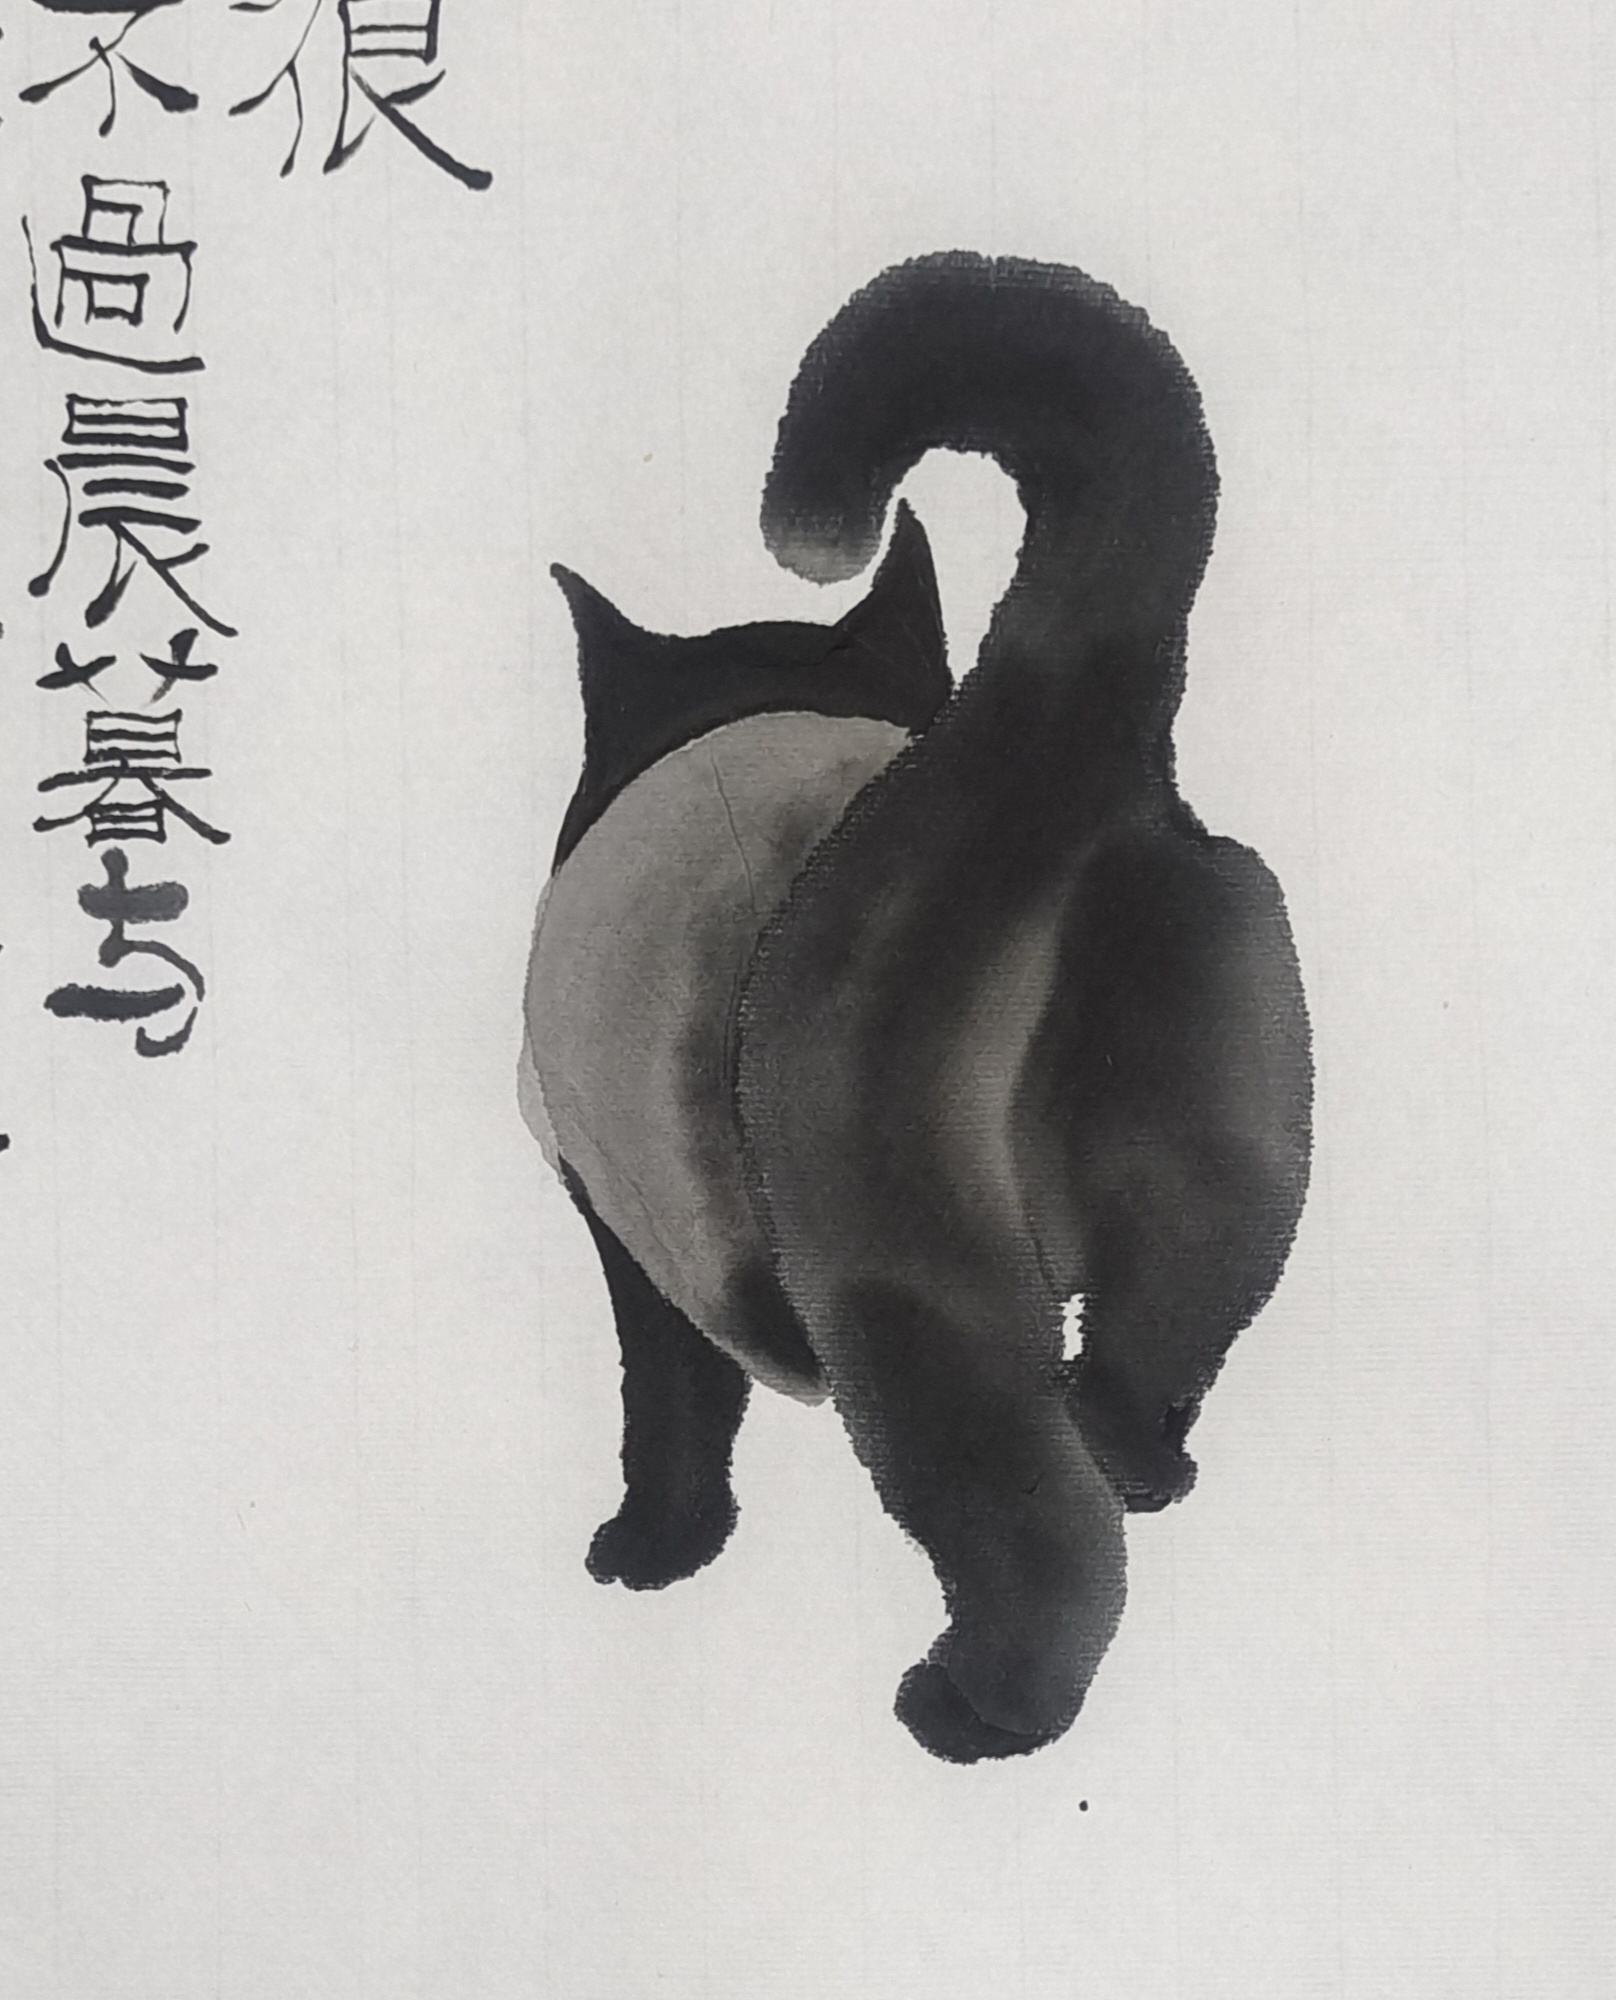 很
不過晨暮与